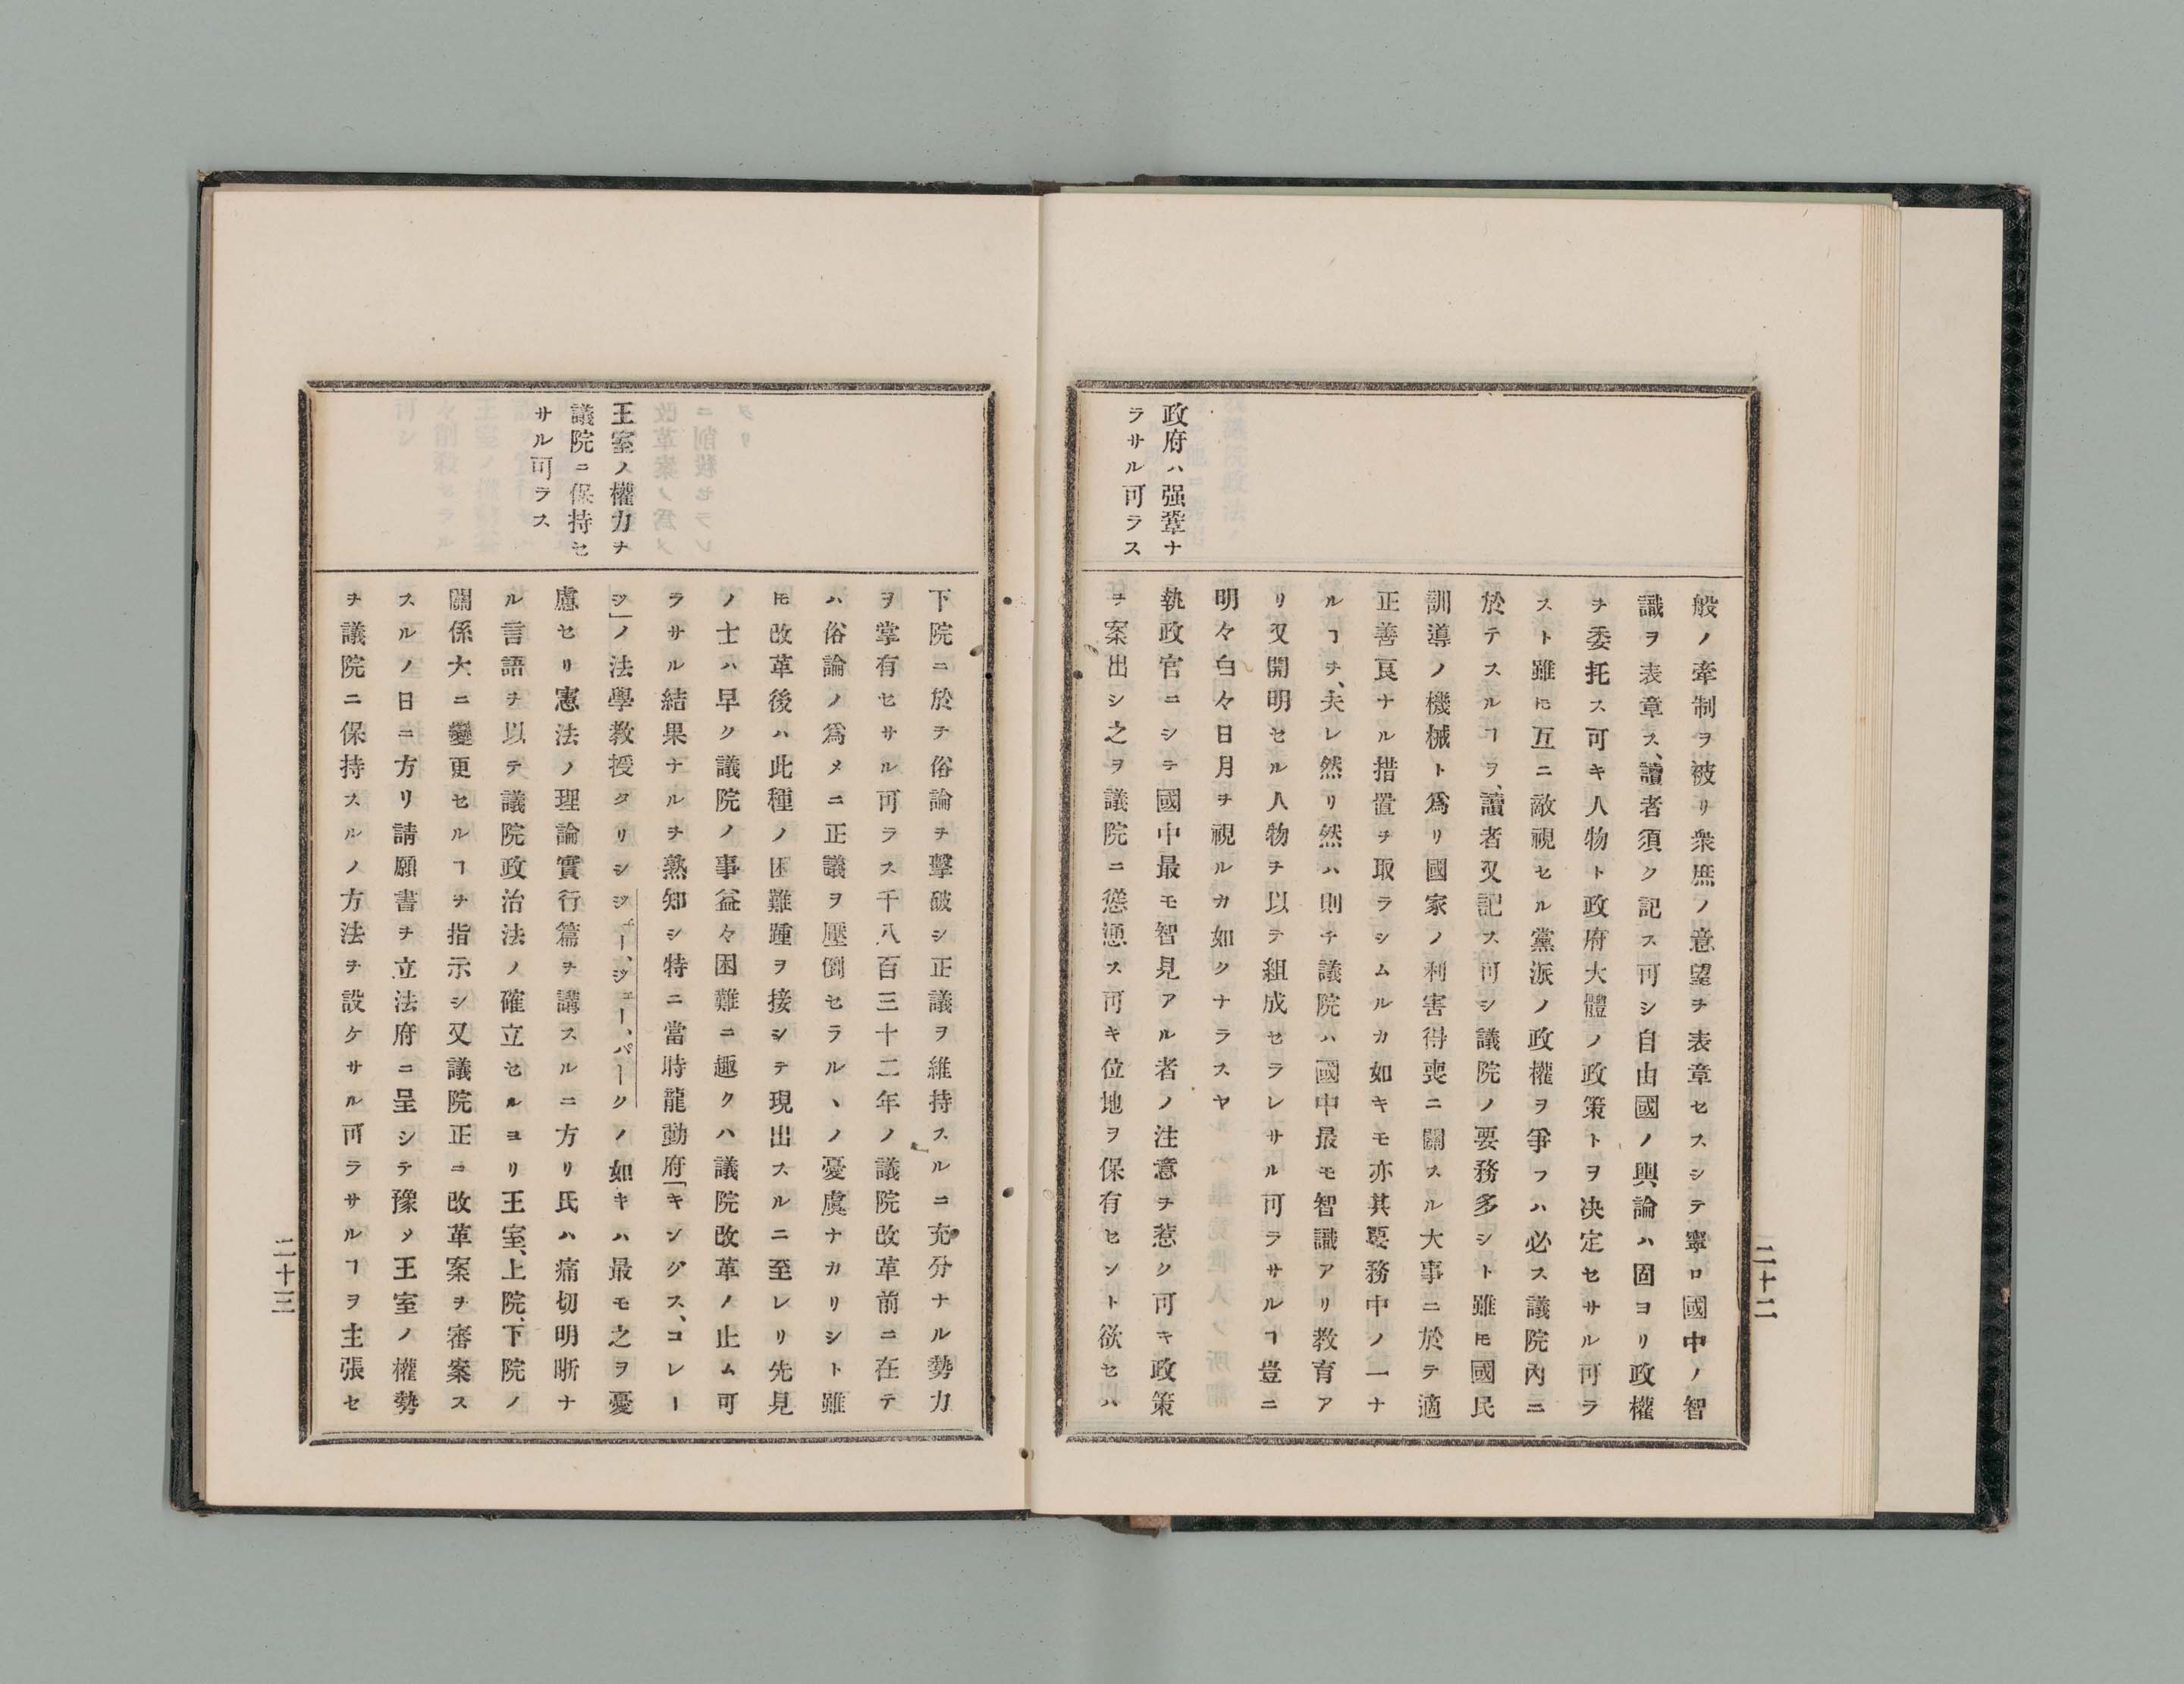 二十二
政府ハ强鞏ナ
ラサル可ラス
般ノ牽制ヲ被リ衆庶ノ意望ヲ表章セスシテ寧ロ國中ノ智
識ヲ表章ス、讀者須ク記ス可シ自由國ノ輿論ハ固ヨリ政權
ヲ委托ス可キ人物ト政府大體ノ政策トヲ决定セサル可ラ
スト雖𪜈互ニ敵視セル黨派ノ政權ヲ爭フハ必ス議院內ニ
於テスルヿヲ、讀者又記ス可シ議院ノ要務多シト雖𪜈國民
訓導ノ機械ト爲リ國家ノ利害得喪ニ關スル大事ニ於テ適
正善良ナル措置ヲ取ラシムルカ如キモ亦其要務中ノ一ナ
ルヿヲ、夫レ然リ然ハ則チ議院ハ國中最モ智識アリ敎育ア
リ又開明セル人物ヲ以テ組成セラレサル可ラサルヿ豈ニ
明々白々日月ヲ視ルカ如クナラスヤ
執政官ニシテ國中最モ智見アル者ノ注意ヲ惹ク可キ政策
ヲ案出シ之ヲ議院ニ慫慂ス可キ位地ヲ保有セント欲セハ
王室ノ權力ヲ
議院ニ保持セ
サル可ラス
下院ニ於テ俗論ヲ擊破シ正議ヲ維持スルニ充分ナル勢力
ヲ掌有セサル可ラス千八百三十二年ノ議院改革前ニ在テ
ハ俗論ノ爲メニ正議ヲ壓倒セラルヽノ憂虞ナカリシト雖
𪜈改革後ハ此種ノ困難踵ヲ接シテ現出スルニ至レリ先見
ノ士ハ早ク議院ノ事益々困難ニ趣クハ議院改革ノ止ム可
ラサル結果ナルヲ熟知シ特ニ當時龍動府「キングス、コレー
ジ」ノ法學敎授タリシジェー、ジェー、パークノ如キハ最モ之ヲ憂
慮セリ憲法ノ理論實行篇ヲ講スルニ方リ氏ハ痛切明晰ナ
ル言語ヲ以テ議院政治法ノ確立セルヨリ王室、上院、下院ノ
關係大ニ變更セルヿヲ指示シ又議院正ニ改革案ヲ審案ス
スルノ日ニ方リ請願書ヲ立法府ニ呈シテ豫メ王室ノ權勢
ヲ議院ニ保持スルノ方法ヲ設ケサル可ラサルヿヲ主張セ
二十三